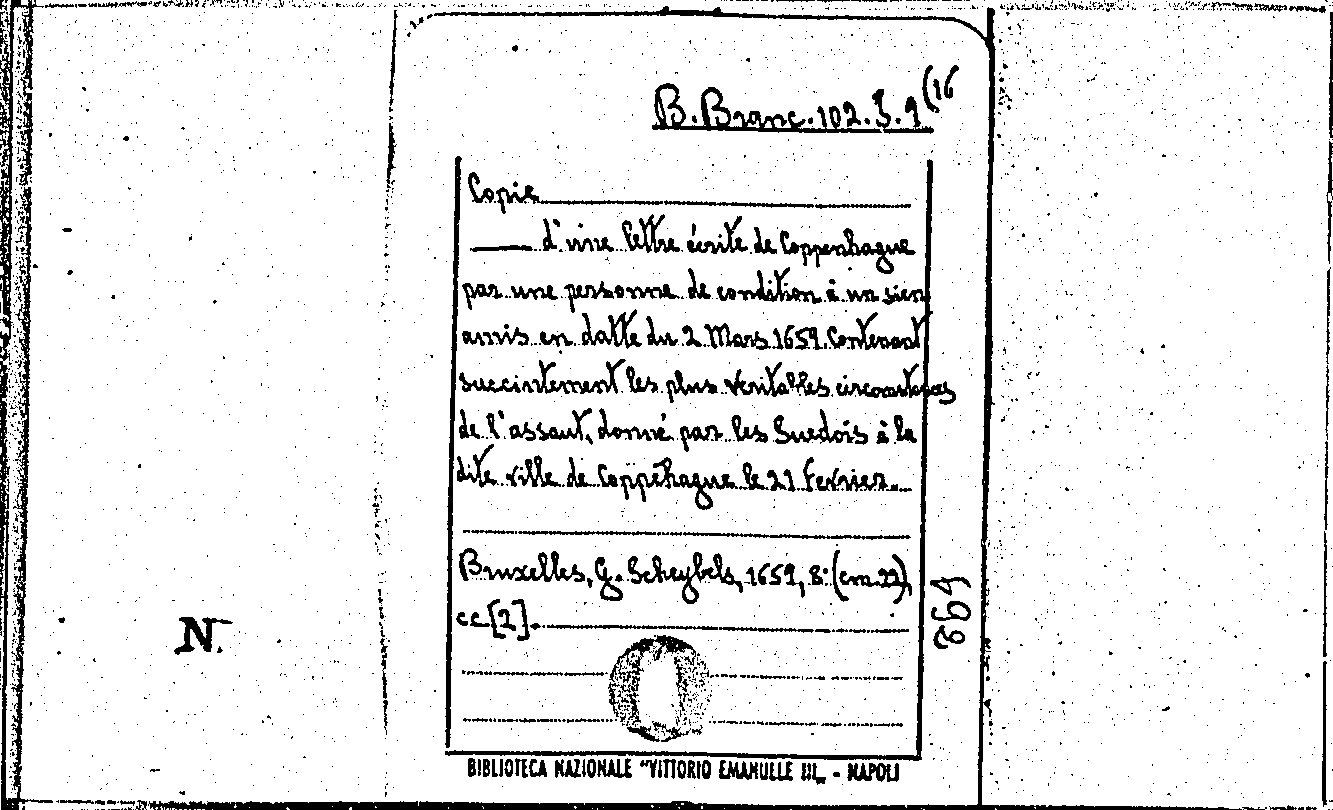 B. Branc. 102. J. 9 (16
Copie
d'une lettre écrite de Coppenhague
par une personne de condition à un sien
amis en datte du 2 Mars 1659. Contenant
succintement les plus veritables circonstances
de l'assaut, donné par les Suedois à la
dite ville de Coppēhague le 21 fevrier.
Bruxelles, G. Scheybels, 1659, 8° (cm. 22),
cc [2].
N.
BIBLIOTECA NAZIONALE "VITTORIO EMANUELLE III„ - NAPOLI